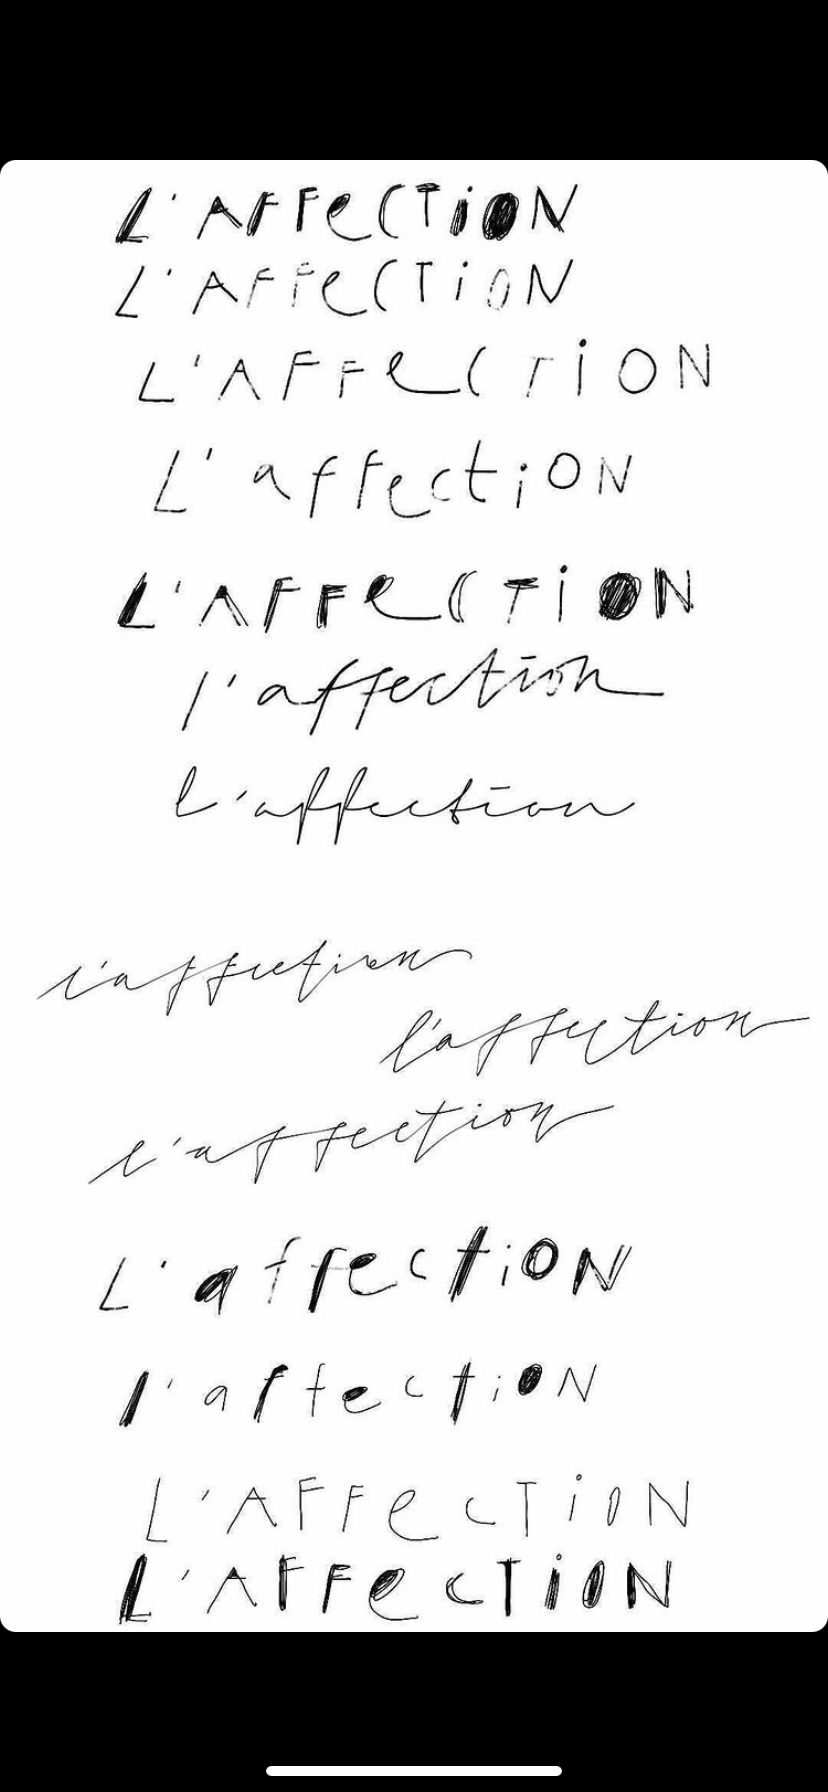 L'AFFeCTiON
L'AFFeCTiON
L'AFFeCTiON
L'affectiON
L'AFFeCTiON
l'affection
l'affection
l'affection
l'affection
l'affection
L'affectiON
l'affectiON
L'AFFeCTiON
L'AFFeCTiON